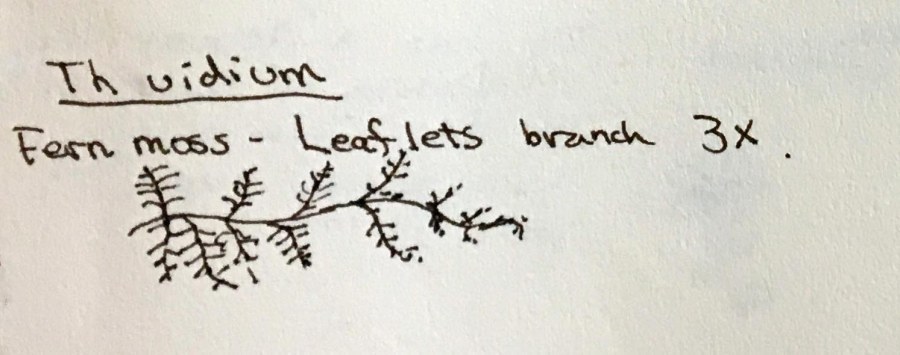 Thuidium
Fern moss - Leaflets branch 3x.